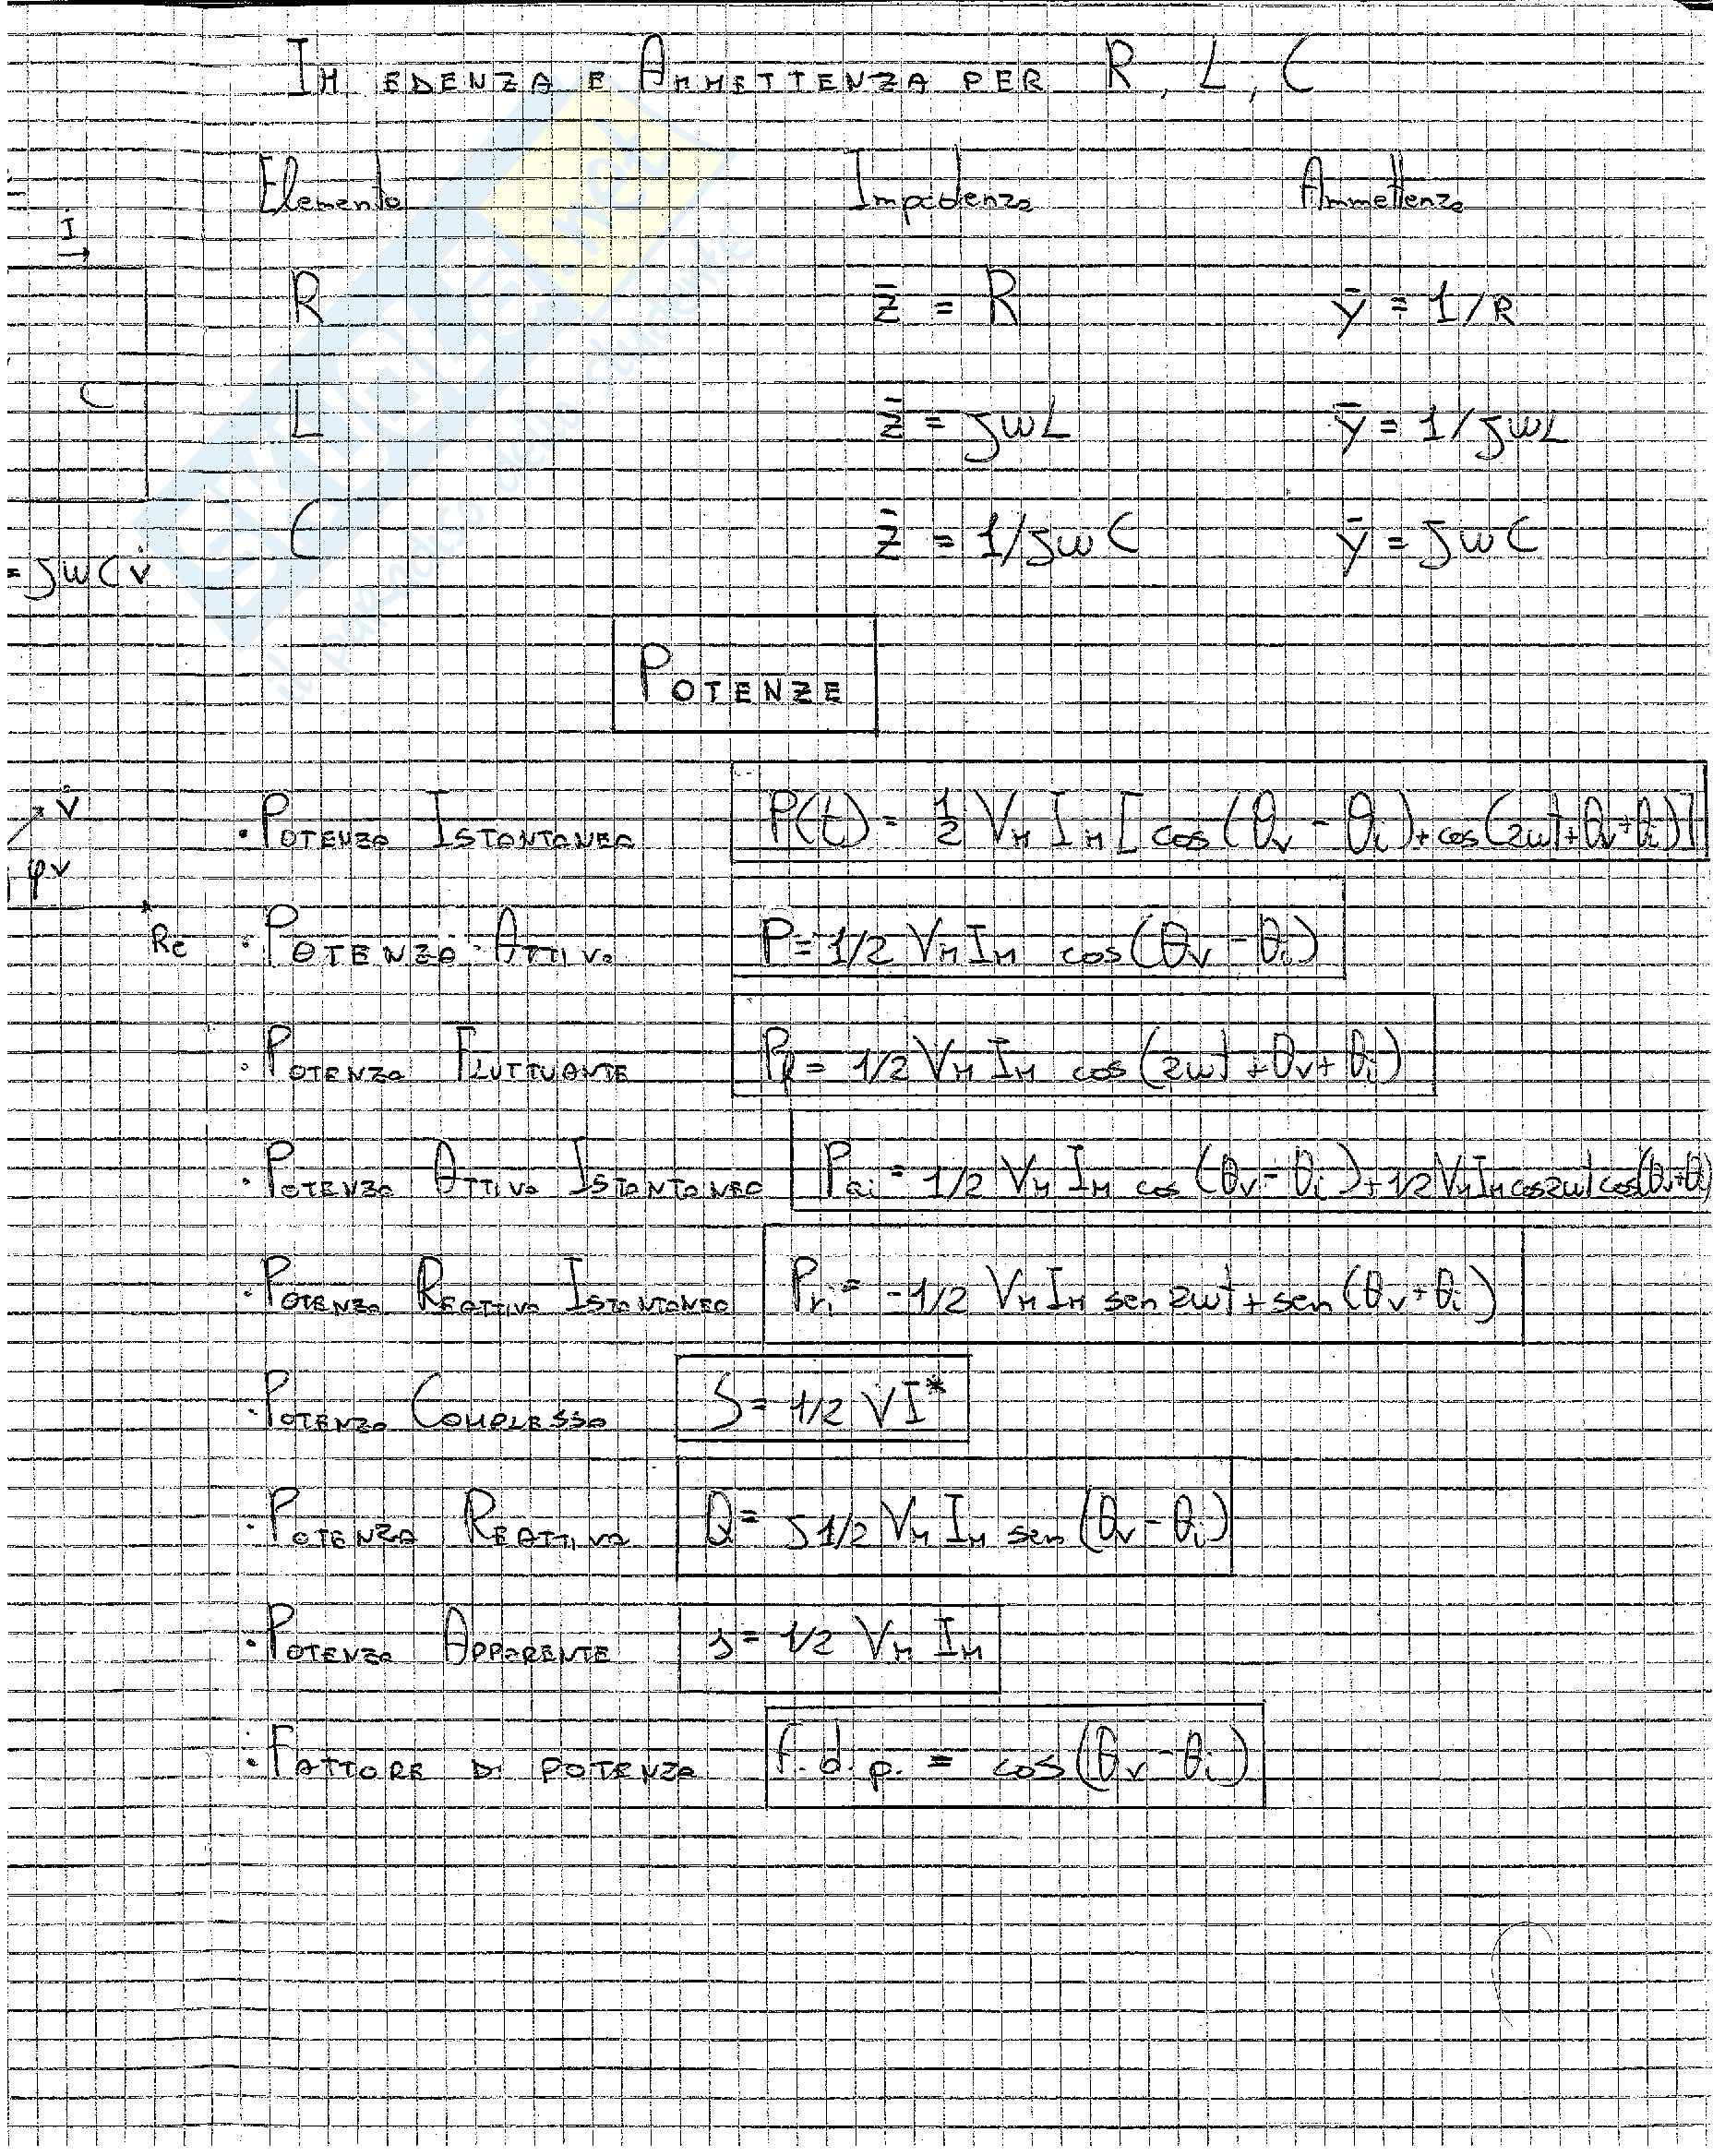 IM EDENZA E AMMETTENZA PER R, L, C
Elemento Impedenza Ammettenza
İ
R z̄ = R ȳ = 1/R
C L z̄ = jωL ȳ = 1/jωL
C z̄ = 1/jωC ȳ = jωC
= jωC v̇
POTENZE
v̇
· POTENZA ISTANTANEA P(t) = 1/2 VM IM [cos(θv - θi) + cos(2ωt + θv + θi)]
φv
Re · POTENZA ATTIVA P = 1/2 VM IM cos(θv - θi)
· POTENZA FLUTTUANTE Pf = 1/2 VM IM cos(2ωt + θv + θi)
· POTENZA ATTIVA ISTANTANEA Pai = 1/2 VM IM cos(θv - θi) + 1/2 VM IM cos2ωt cos(θv + θi)
· POTENZA REATTIVA ISTANTANEA Pri = -1/2 VM IM sen2ωt + sen(θv + θi)
· POTENZA COMPLESSA S = 1/2 VI*
· POTENZA REATTIVA Q = j1/2 VM IM sen(θv - θi)
· POTENZA APPARENTE s = 1/2 VM IM
· FATTORE DI POTENZA f.d.p. = cos(θv - θi)
SKUOLA.net
il paradiso dello studente